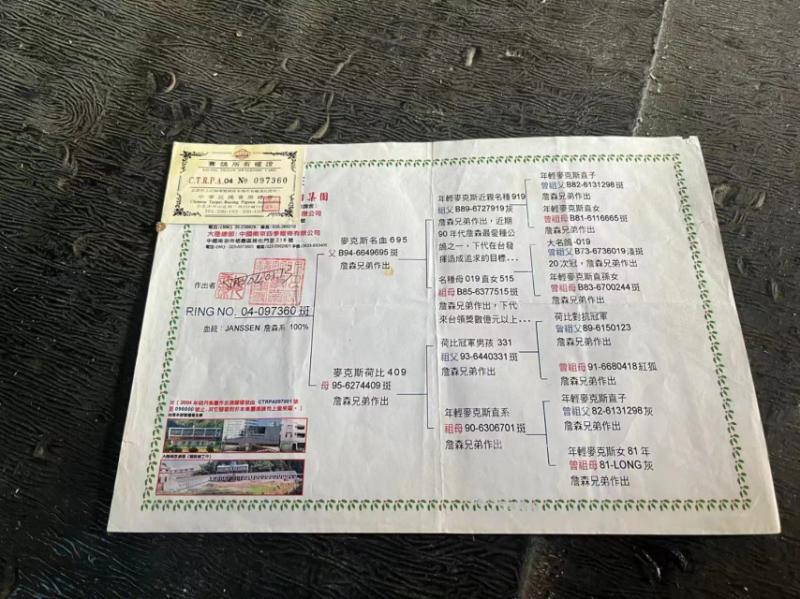 賽鴿所有權證
C.T.R.P.A. 04 № 097360
Chinese Taipei Racing Pigeon Association
集團
有限公司
大陸總部：中國南京四季龍脊有限公司
作出者
RING NO. 04-097360 斑
血統：JANSSEN 詹森系 100%
麥克斯名血 695
父 B94-6649695 斑
詹森兄弟作出
麥克斯荷比 409
母 95-6274409 斑
詹森兄弟作出
年輕麥克斯近親名種 919
祖父 B89-6727919 灰
詹森兄弟作出，近期
90 年代詹森最愛種公
鴿之一，下代在台發
揮造成追求的目標...
名種母 019 直女 515
祖母 B85-6377515 斑
詹森兄弟作出，下代
來台領獎數億元以上...
荷比冠軍男孩 331
祖父 93-6440331 斑
詹森兄弟作出
年輕麥克斯直系
祖母 90-6306701 斑
詹森兄弟作出
年輕麥克斯直子
曾祖父 B82-6131298 斑
詹森兄弟作出
年輕麥克斯直女
曾祖母 B81-6116665 斑
詹森兄弟作出
大名鴿 -019
曾祖父 B73-6736019 淺斑
20 次冠，詹森兄弟作出
年輕麥克斯直孫女
曾祖母 B83-6700244 斑
詹森兄弟作出
荷比對抗冠軍
曾祖父 89-6150123
詹森兄弟作出
曾祖母 91-6680418 紅狐
詹森兄弟作出
年輕麥克斯直子
曾祖父 82-6131298 灰
詹森兄弟作出
年輕麥克斯女 81 年
曾祖母 81-LONG 灰
詹森兄弟作出